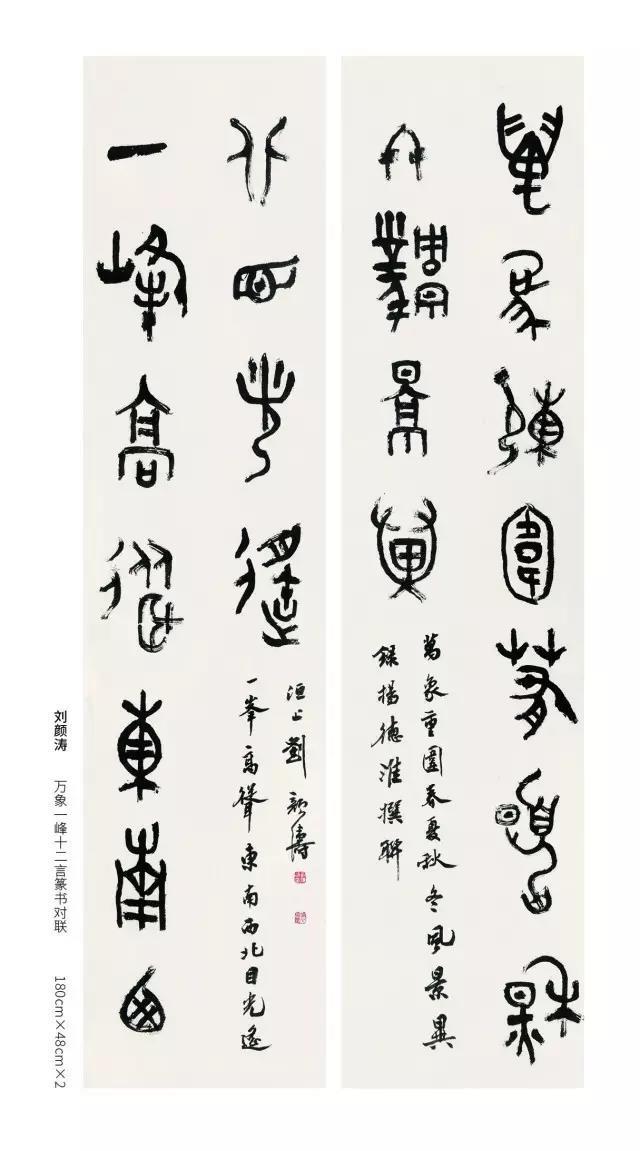 萬象重圍春夏秋
冬風景異
萬象重圍春夏秋冬風景異
錄楊德淮撰聯
一峰高聳東南西
北目光遙
一峯高聳東南西北目光遙
洹上劉顏濤
刘颜涛 万象一峰十二言篆书对联 180cm×48cm×2